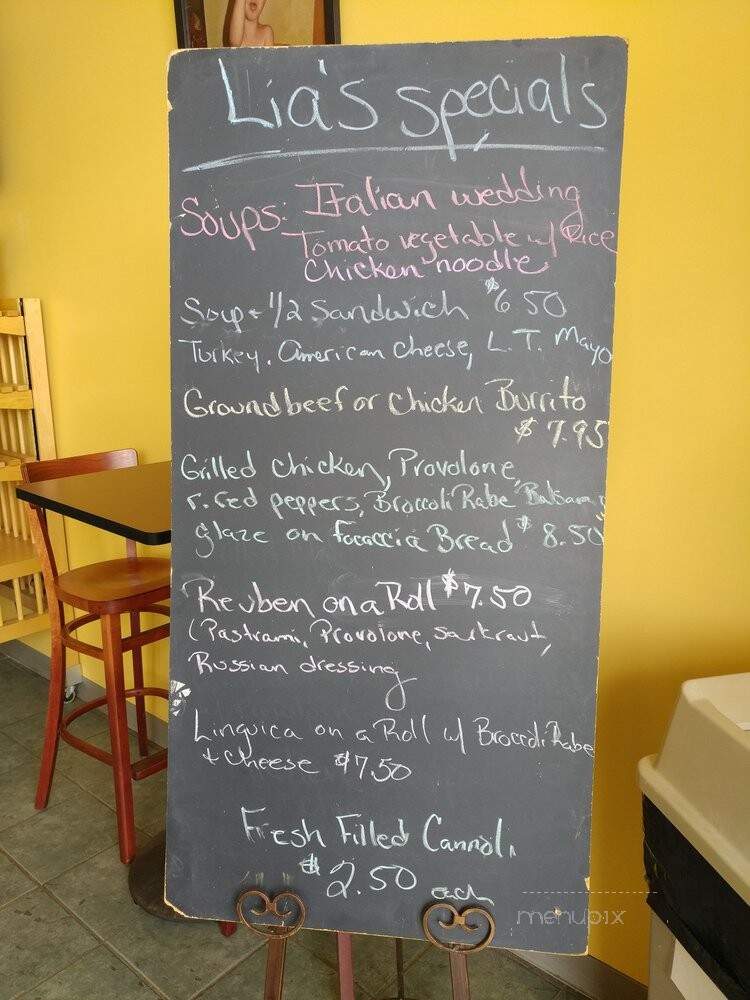 Lia's specials
Soups: Italian wedding
Tomato vegetable w/ Rice
Chicken noodle
Soup + 1/2 Sandwich $6 50
Turkey, American cheese, L.T. Mayo
Ground beef or chicken Burrito
$ 7.95
Grilled chicken, Provolone,
r. red peppers, Broccoli Rabe Balsamic
glaze on focaccia Bread $ 8.50
Reuben on a Roll $7.50
(Pastrami, Provolone, sarkraut,
Russian dressing
Linguica on a Roll w/ Broccoli Rabe
+ cheese $7.50
Fresh Filled Cannoli
$2.50 each
menupix